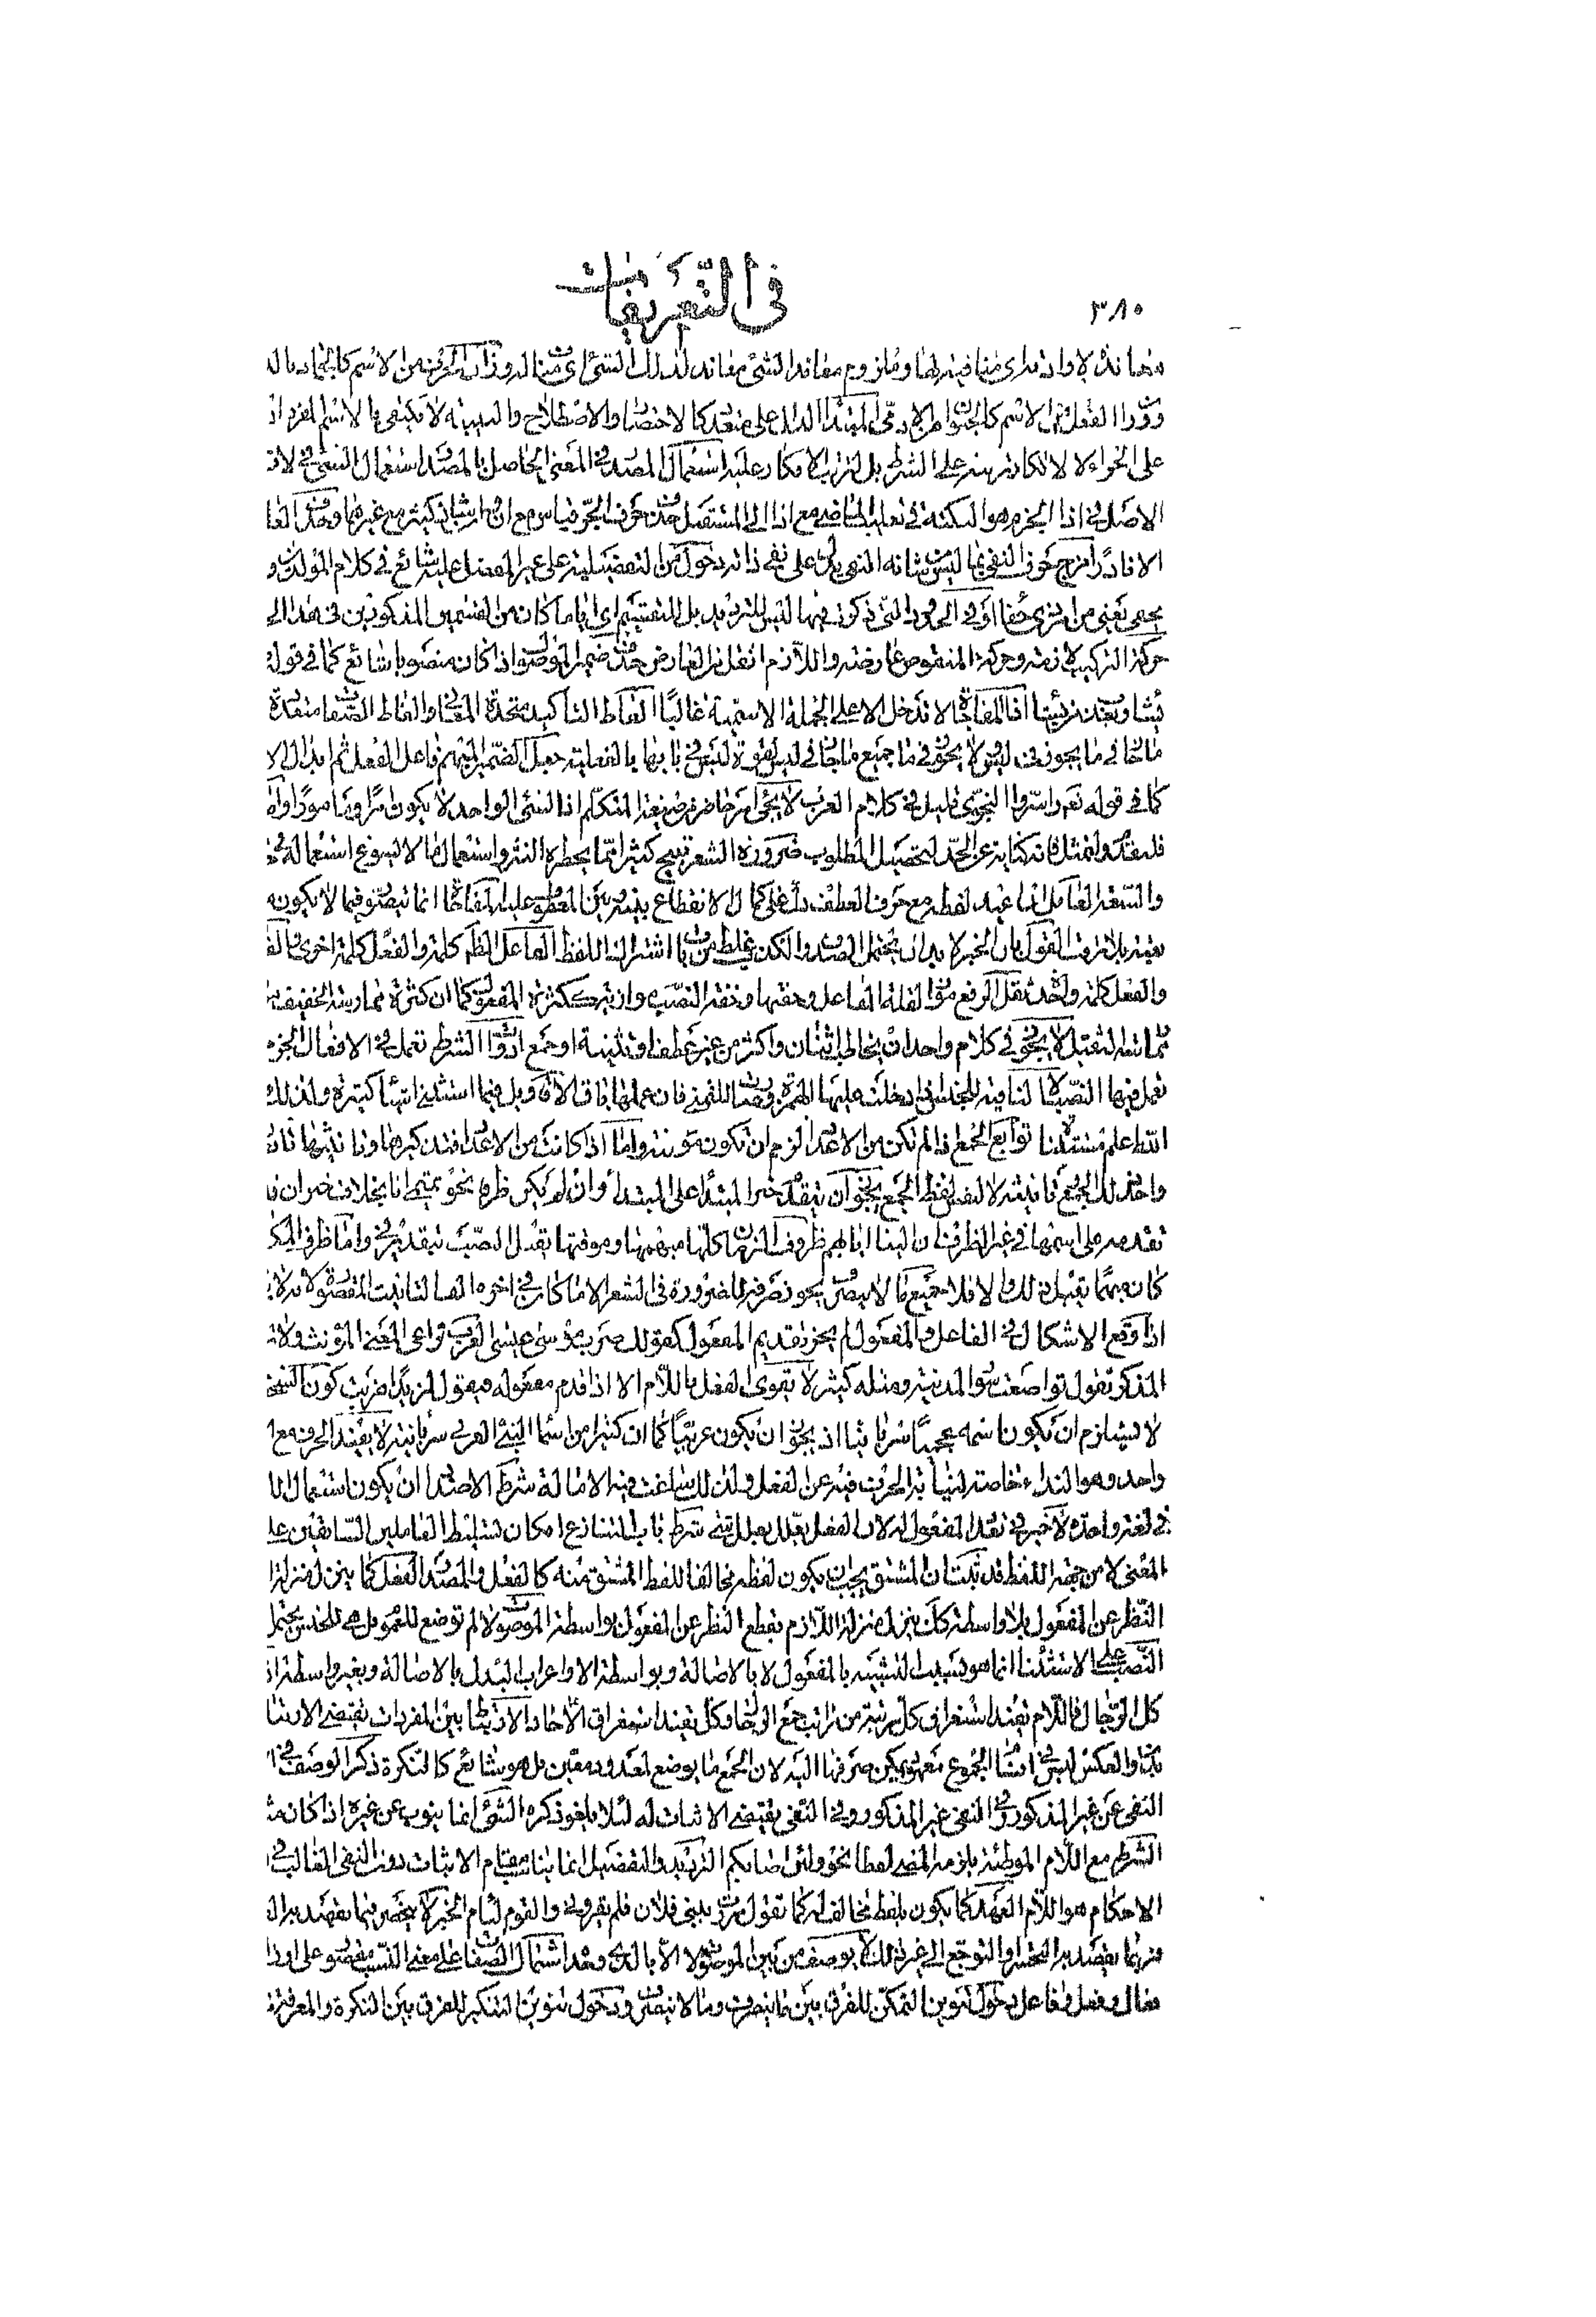 في التعريفات
٣٨٠
معاند للوازمه اى منافية لها وملزوم معاند الشئ معاند لذلك الشئ اى مناف له وزان الحرف من الاسم كالجماد
وزان الفعل من الاسم كالحيوان من الآدمى المبتدأ الدال على متعدد كالاختصاص والاصطلاح والبينية لا يكتفى بالاسم المفرد
على الجواب لا لانكار ترتبه على الشرط بل لترتب الانكار عليه استعمال المصدر في المعنى الحاصل بالمصدر استعمال الشئ في
الاصل في اذا الجزم هو النكتة في تغليب الماضى مع اذا الى المستقبل حذف حرف الجر قياس مع ان وان شايع كثير مع غيرهما وحذف
الا نادرا مزج حرف النفى بما ليس شانه النهى يدل على نفى ذاته دخول من التفضيلية على غير المفضل عليه شائع في كلام المولدين و
يعنى من ان يرى حقا او في الحدود التى ذكرت فيها ليس للترديد بل للتقسيم اى اياما كان من القسمين المذكورين في هذا
حركة التركيب لازمة وحركة المنقوص عارضة واللازم اثقل من العارض حذف ضمير الموصول اذا كان منصوبا شائع كما في قوله
يشاء وبعد نزئيتها اذا المفاجأة لا تدخل الا على الجملة الاسمية غالبًا الفاظ التاكيد متحدة المعنى والفاظ الصفات متعددة
ما في ما يجوز في ليس لا يجوز في ما جميع ما جاز في ليس لقوة ليس في بابها بالفعلية جعل الضمير المبهم فاعل الفعل ثم ابدال
كما في قوله تعم واسروا النجوى قليل في كلام العرب لا يجئ امر حاضر من صيغة المتكلم اذ الشئ الواحد لا يكون آمرا ومأمورًا
فلنقتد ولنمثل فانه كناية عن الجد لتحصيل المطلوب ضرورة الشعر تبيح كثيرا مما يحظره النثر واستعمال ما لا يسوغ استعماله
والسعة العامل اذا اعيد لفظه مع حرف العطف دل على كمال الانقطاع بينه وبين المعطوف عليه المفاجأة انما يتصور فيما لا يكون
بقيته بلا تعرف القول بان الخبر لا بد ان يحتمل الصدق والكذب غلط من باب اشتراك اللفظ الفاعل المظهر كلمة والفعل كلمة اخرى
والفعل كلمة واحدة ثقل الرفع مواز لقلة الفاعل وخفتها وخفة النصب موازية لكثرة المفعول كما ان كثرة ممارسة الخفيف
ممارسة الثقيل لا يجوز في كلام واحد ان يخاطب اثنان واكثر من غير عطف او تثنية او جمع ادوات الشرط تعمل في الافعال الجزم
تعمل فيها النصب لا النافية للجنس اذا دخلت عليها الهمزة وصارت للتمنى فان عملها باق الاقاويل فيما استثنى اشياء كثيرة ولذلك
الله اعلم مستثنا توابع الجمع اذا لم تكن من الاعداد لزم ان تكون مؤنثة واما اذا كانت من الاعداد فتذكيرها وتانيثها
واحد ذلك الجمع تانيثه لا لنفس لفظ الجمع يجوز ان يتقدم خبر المبتدأ على المبتدأ وان لم يكن ظرفا نحو تميمى انا بخلاف خبر ان
تقدمه على اسمها في غير الظرف نحو ان الينا ايابهم ظروف الزمان كلها مبهمها وموقتها يقبل النصب بتقدير في واما ظرف المكان
كان مبهما يقبل ذلك والا فلا جميع ما لا ينصرف يجوز تصرفه لضرورة في الشعر الا ما كان في اخره الف التانيث المقصورة
اذا وقع الاشكال في الفاعل والمفعول لم يجز تقديم المفعول كقولك ضرب موسى عيسى العرب تراعى المعنى المؤنث
المذكر تقول تواضعت سور المدينة ومثله كثير لا يقوى الفعل باللام الا اذا قدم مفعوله فيقول لزيد ضربت كون
لا يستلزم ان يكون اسمه عجميًا سريانيا اذ يجوز ان يكون عربيًا كما ان كثيرا من اسماء النبى العربى سريانية لا يفيد الحرف مع
واحد وهو النداء خاصة لنيابة الحرف فيه عن الفعل ولذلك ساغت فيه الامالة شرط الاضداد ان يكون استعمال
في لغة واحدة لا خير في تعدد المفعول له لان الفعل يعلل بعلل شتى شرط باب التنازع امكان تسليط العاملين السابقين
المعنى لا من جهة اللفظ قد ثبت ان المشتق يجب ان يكون لفظه مخالفا للفظ المشتق منه كالفعل والمصدر الفعل كما ينزل منزلة
النظر عن المفعول بلا واسطة كك ينزل منزلة اللازم بقطع النظر عن المفعول بواسطة الموصول لا لم توضع للعموم بل هى للجنس
النصب على الاستثناء انما هو بسبب التشبيه بالمفعول لا بالاصالة وبواسطة الا واعراب البدل بالاصالة وبغير واسطة
كل الرجال فاللام تفيد استغراق كل مرتبة من مراتب جمع الرجال وكل تفيد استغراق الاحاد الارتباط بين المفردات يقتضى
والعكس ليس في اقسام الجموع معهود يمكن صرفها اليه لان الجمع ما يوضع لعدد معين بل هو شائع كالنكرة ذكر الوصف في
النفى عن غير المذكور وفي النفى غير المذكور وفي النفى يقتضى الاثبات له لئلا يلغو ذكره الشئ انما ينوب عن غيره اذا كان
الشرط مع اللام الموطئة يلزمه المضى لفظا نحو ولئن اصابكم الترديد والتفضيل انما يناسب مقام الاثبات دون النفى الغالب في
الاحكام هو اللام العهد كما يكون بلفظ مخالف له كما تقول مررت ببنى فلان فلم يقرونى والقوم لئام الخبر لا ينحصر فيما يقصد به
فربما يقصد به التحسر والتوجع الى غير ذلك لا يوصف من بين الموصولات الا بالذى وحد اشتمال الصفات على معنى النسب مقصور على
فعال وفعل وفاعل دخول تنوين التمكن للفرق بين ما ينصرف وما لا ينصرف ودخول تنوين التنكير للفرق بين النكرة والمعرفة